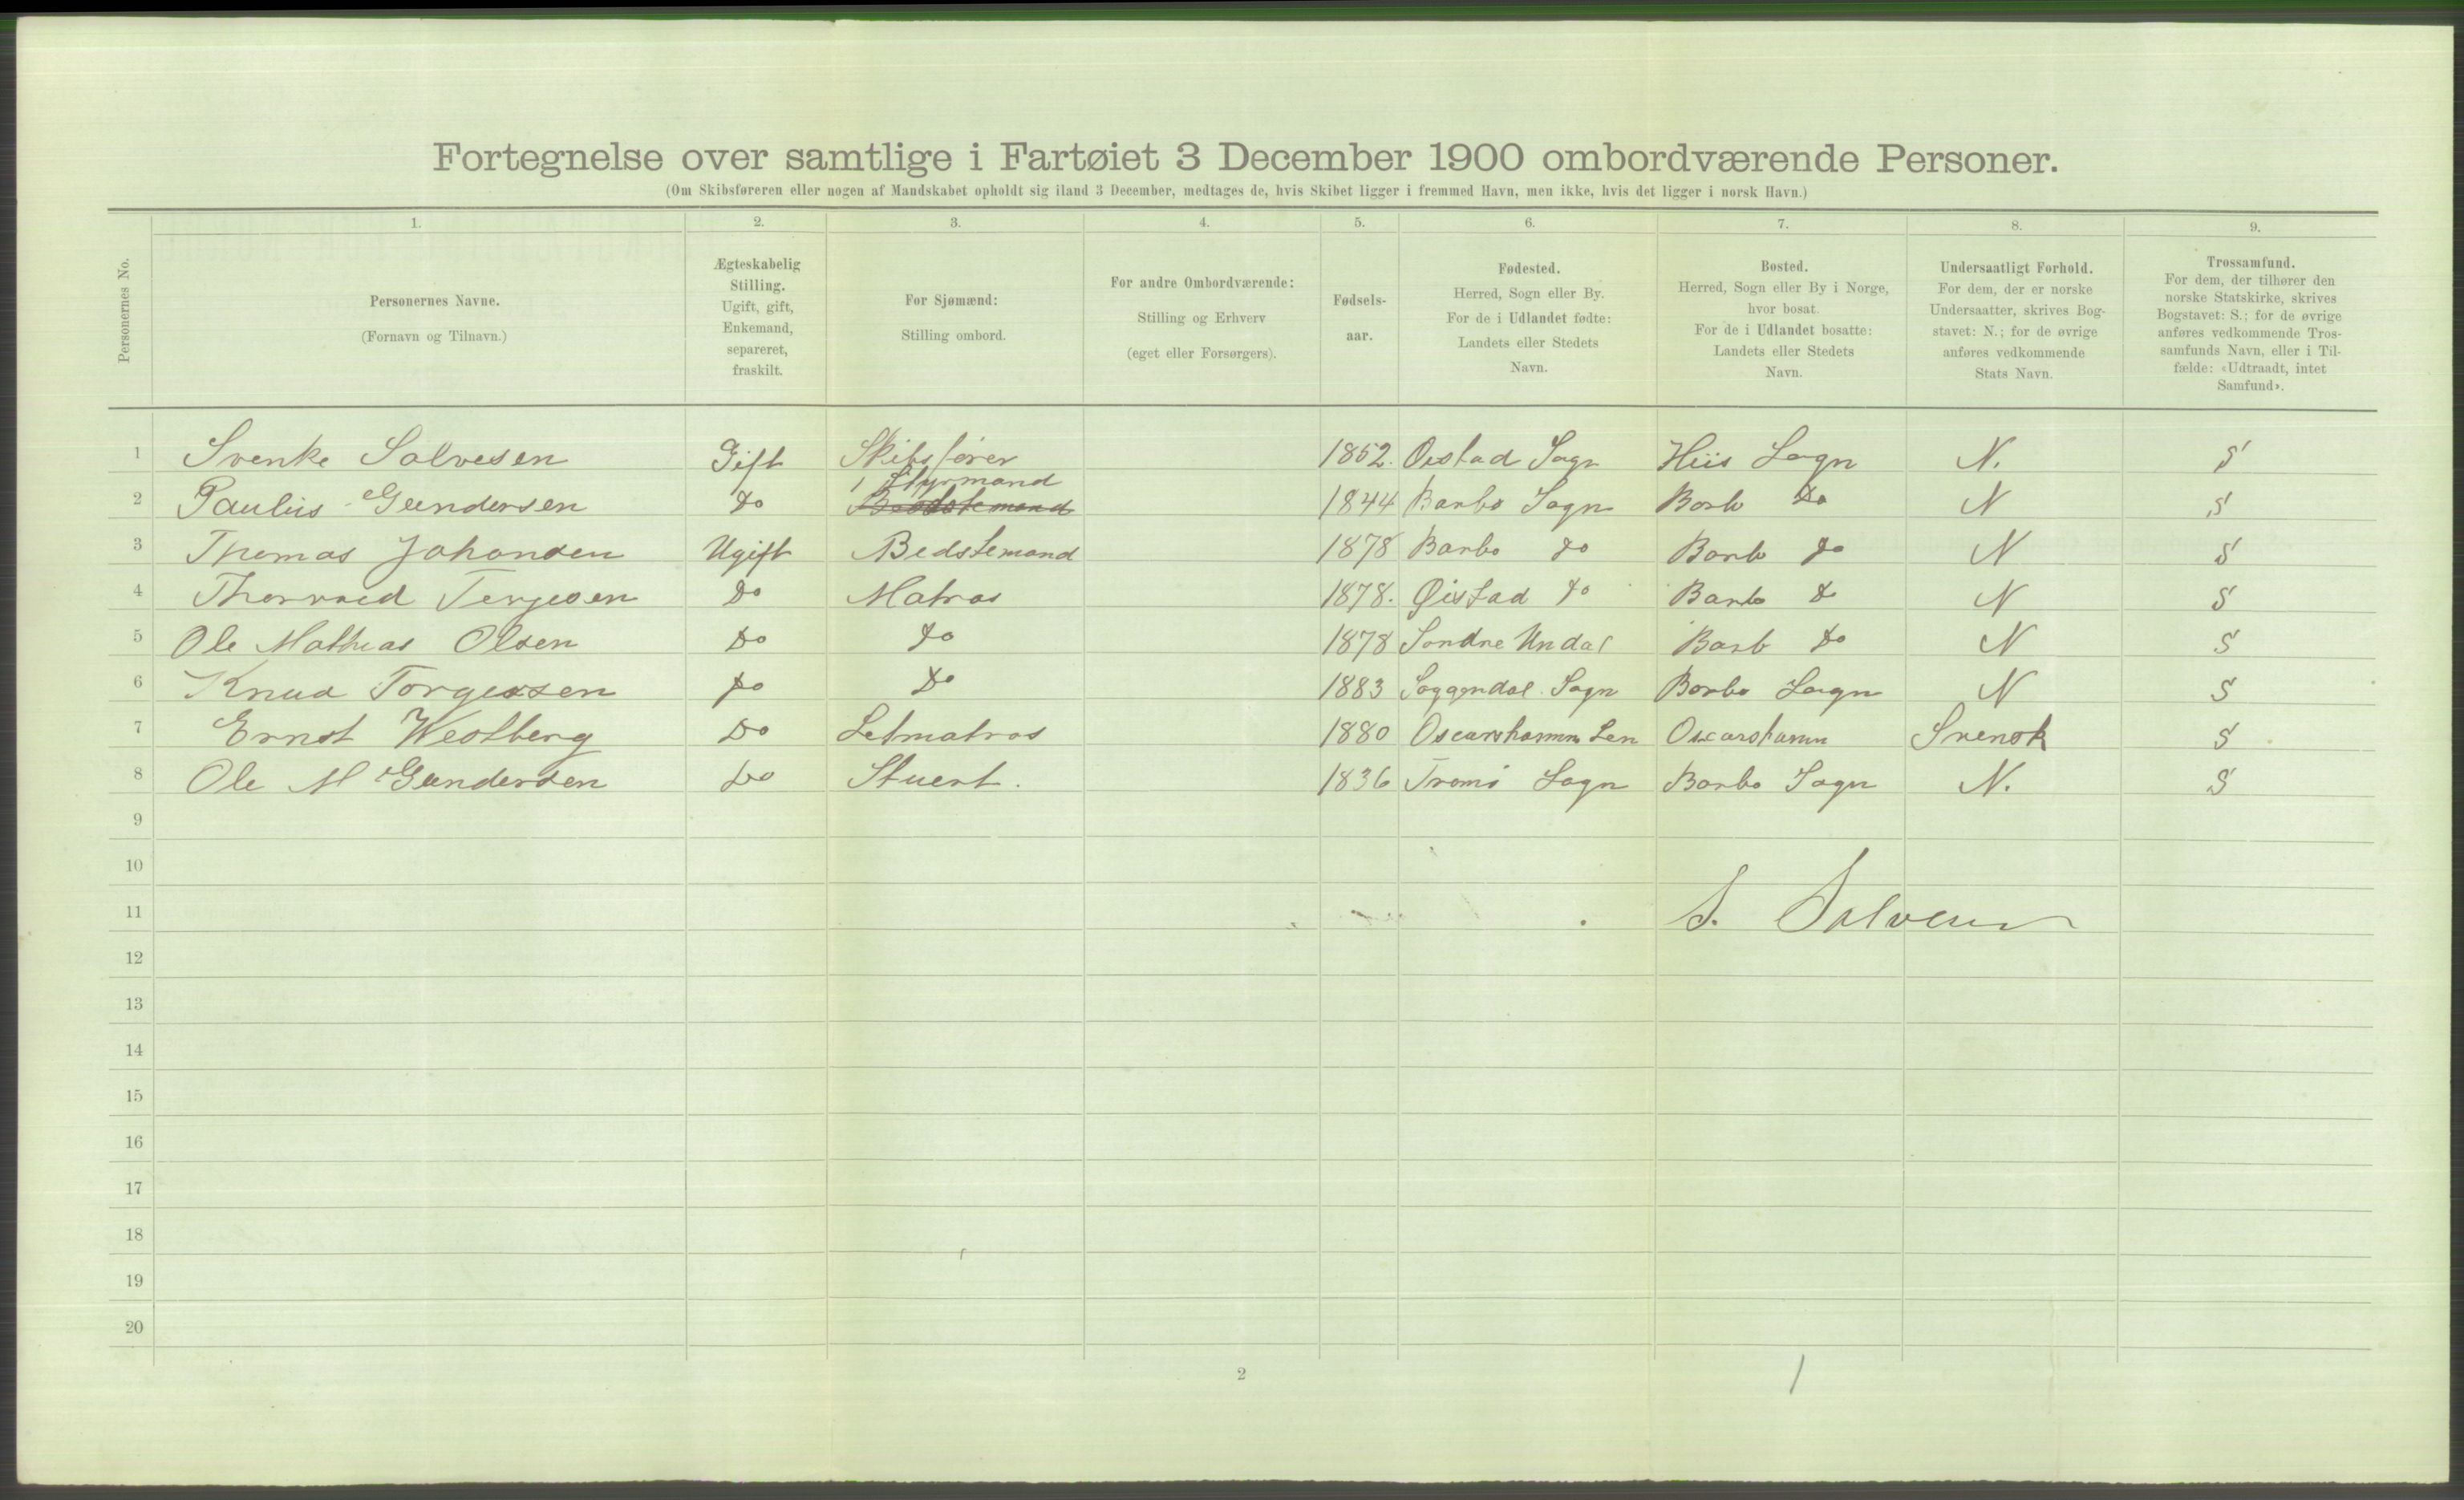 Fortegnelse over samtlige i Fartøiet 3 December 1900 ombordværende Personer.
(Om Skibsføreren eller nogen af Mandskabet opholdt sig iland 3 December, medtages de, hvis Skibet ligger i fremmed Havn, men ikke, hvis det ligger i norsk Havn.)
Personernes No.
1. 2. 3. 4. 5. 6. 7. 8. 9.
Personernes Navne.
(Fornavn og Tilnavn.)
Ægteskabelig
Stilling.
Ugift, gift,
Enkemand,
separeret,
fraskilt.
For Sjømænd:
Stilling ombord.
For andre Ombordværende:
Stilling og Erhverv
(eget eller Forsørgers).
Fødsels-
aar.
Fødested.
Herred, Sogn eller By.
For de i Udlandet fødte:
Landets eller Stedets
Navn.
Bosted.
Herred, Sogn eller By i Norge,
hvor bosat.
For de i Udlandet bosatte:
Landets eller Stedets
Navn.
Undersaatligt Forhold.
For dem, der er norske
Undersaatter, skrives Bog-
stavet: N.; for de øvrige
anføres vedkommende
Stats Navn.
Trossamfund.
For dem, der tilhører den
norske Statskirke, skrives
Bogstavet: S.; for de øvrige
anføres vedkommende Tros-
samfunds Navn, eller i Til-
fælde: «Udtraadt, intet
Samfund».
1 Svenke Salvesen Gift Skibsfører 1852. Oistad Sogn Hiis Sogn N. S
1 Styrmand
2 Paulius Gundersen Do Bedstemand 1844 Barbo Sogn Barb Do N S
3 Thomas Johansen Ugift Bedstemand 1878 Barbo Do Barb Do N S
4 Thorvald Terjesen Do Matros 1878. Øistad Do Barb Do N S
5 Ole Mathias Olsen Do Do 1878 Sondre Undal Barb Do N S
6 Knud Torgersen Do Do 1883 Soggendal Sogn Barbo Sogn N S
7 Ernst Westberg Do Letmatros 1880 Oscarshamn Len Oscarshamn Svensk S
8 Ole M Gundersen Do Stuert. 1836 Tromö Sogn Barbo Sogn N. S
9
10
11 S. Salvesen
12
13
14
15
16
17
18
19
20
2 1